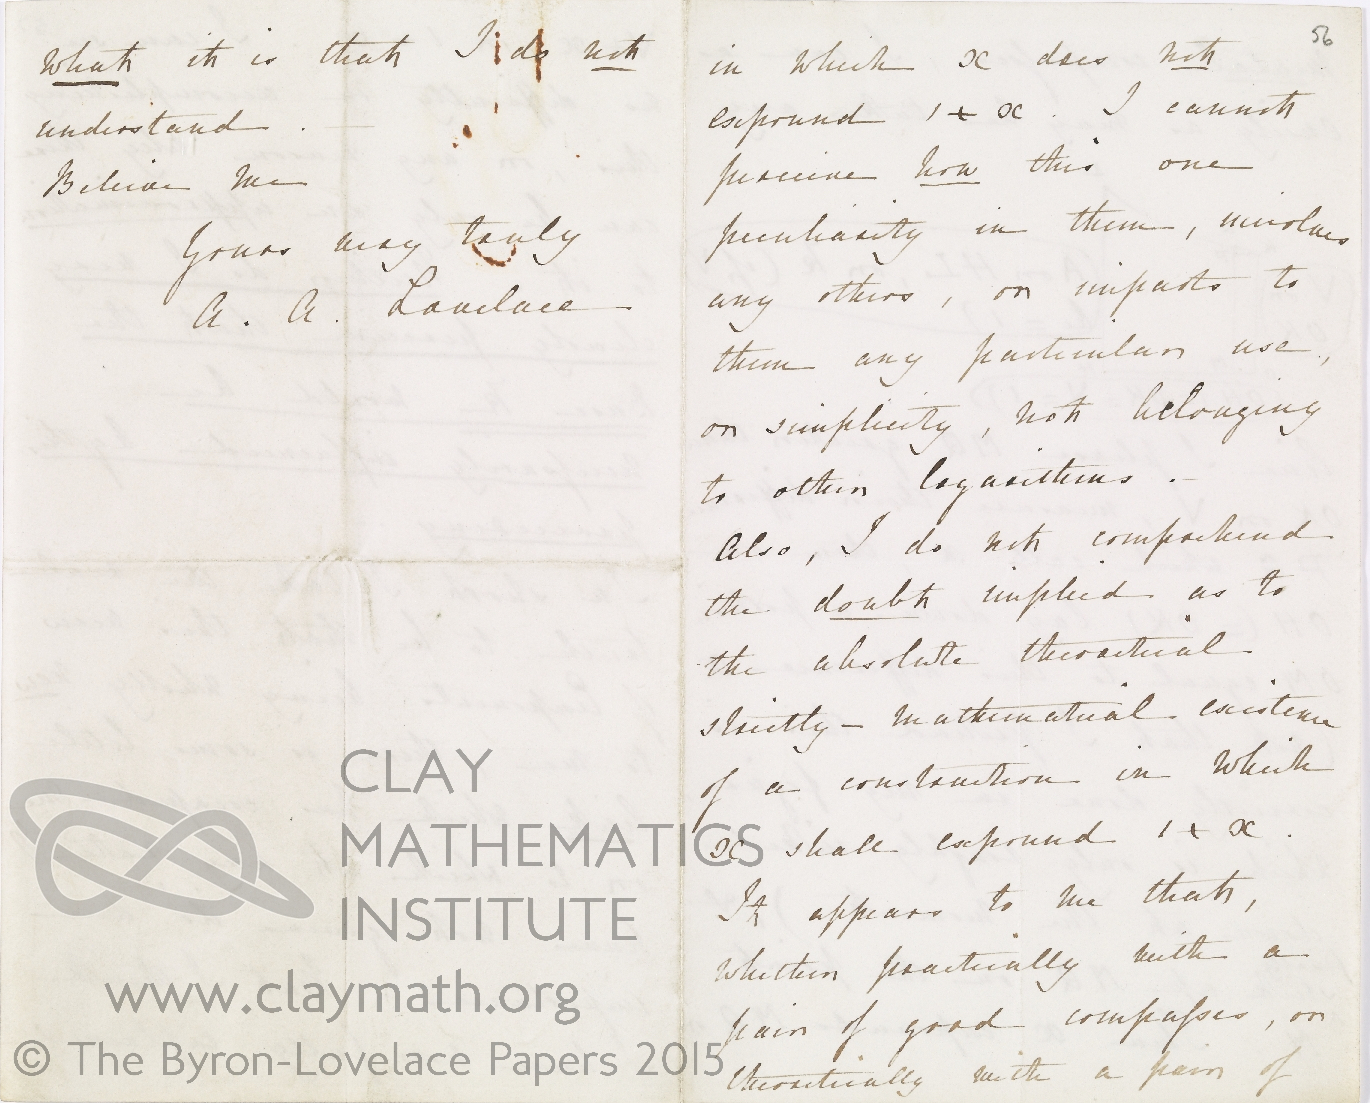 what it is that I do not
understand.
Believe me
Yours very truly
A. A. Lovelace
56
in which x does not
expound 1 + x. I cannot
perceive how this one
peculiarity in them, involves
any others, or imparts to
them any particular use,
or simplicity, not belonging
to other logarithms. -
Also, I do not comprehend
the doubt implied as to
the absolute theoretical
strictly-mathematical existence
of a construction in which
x shall expound 1 + x.
It appears to me that,
whether practically with a
pair of good compasses, or
theoretically with a pair of
CLAY
MATHEMATICS
INSTITUTE
www.claymath.org
© The Byron-Lovelace Papers 2015